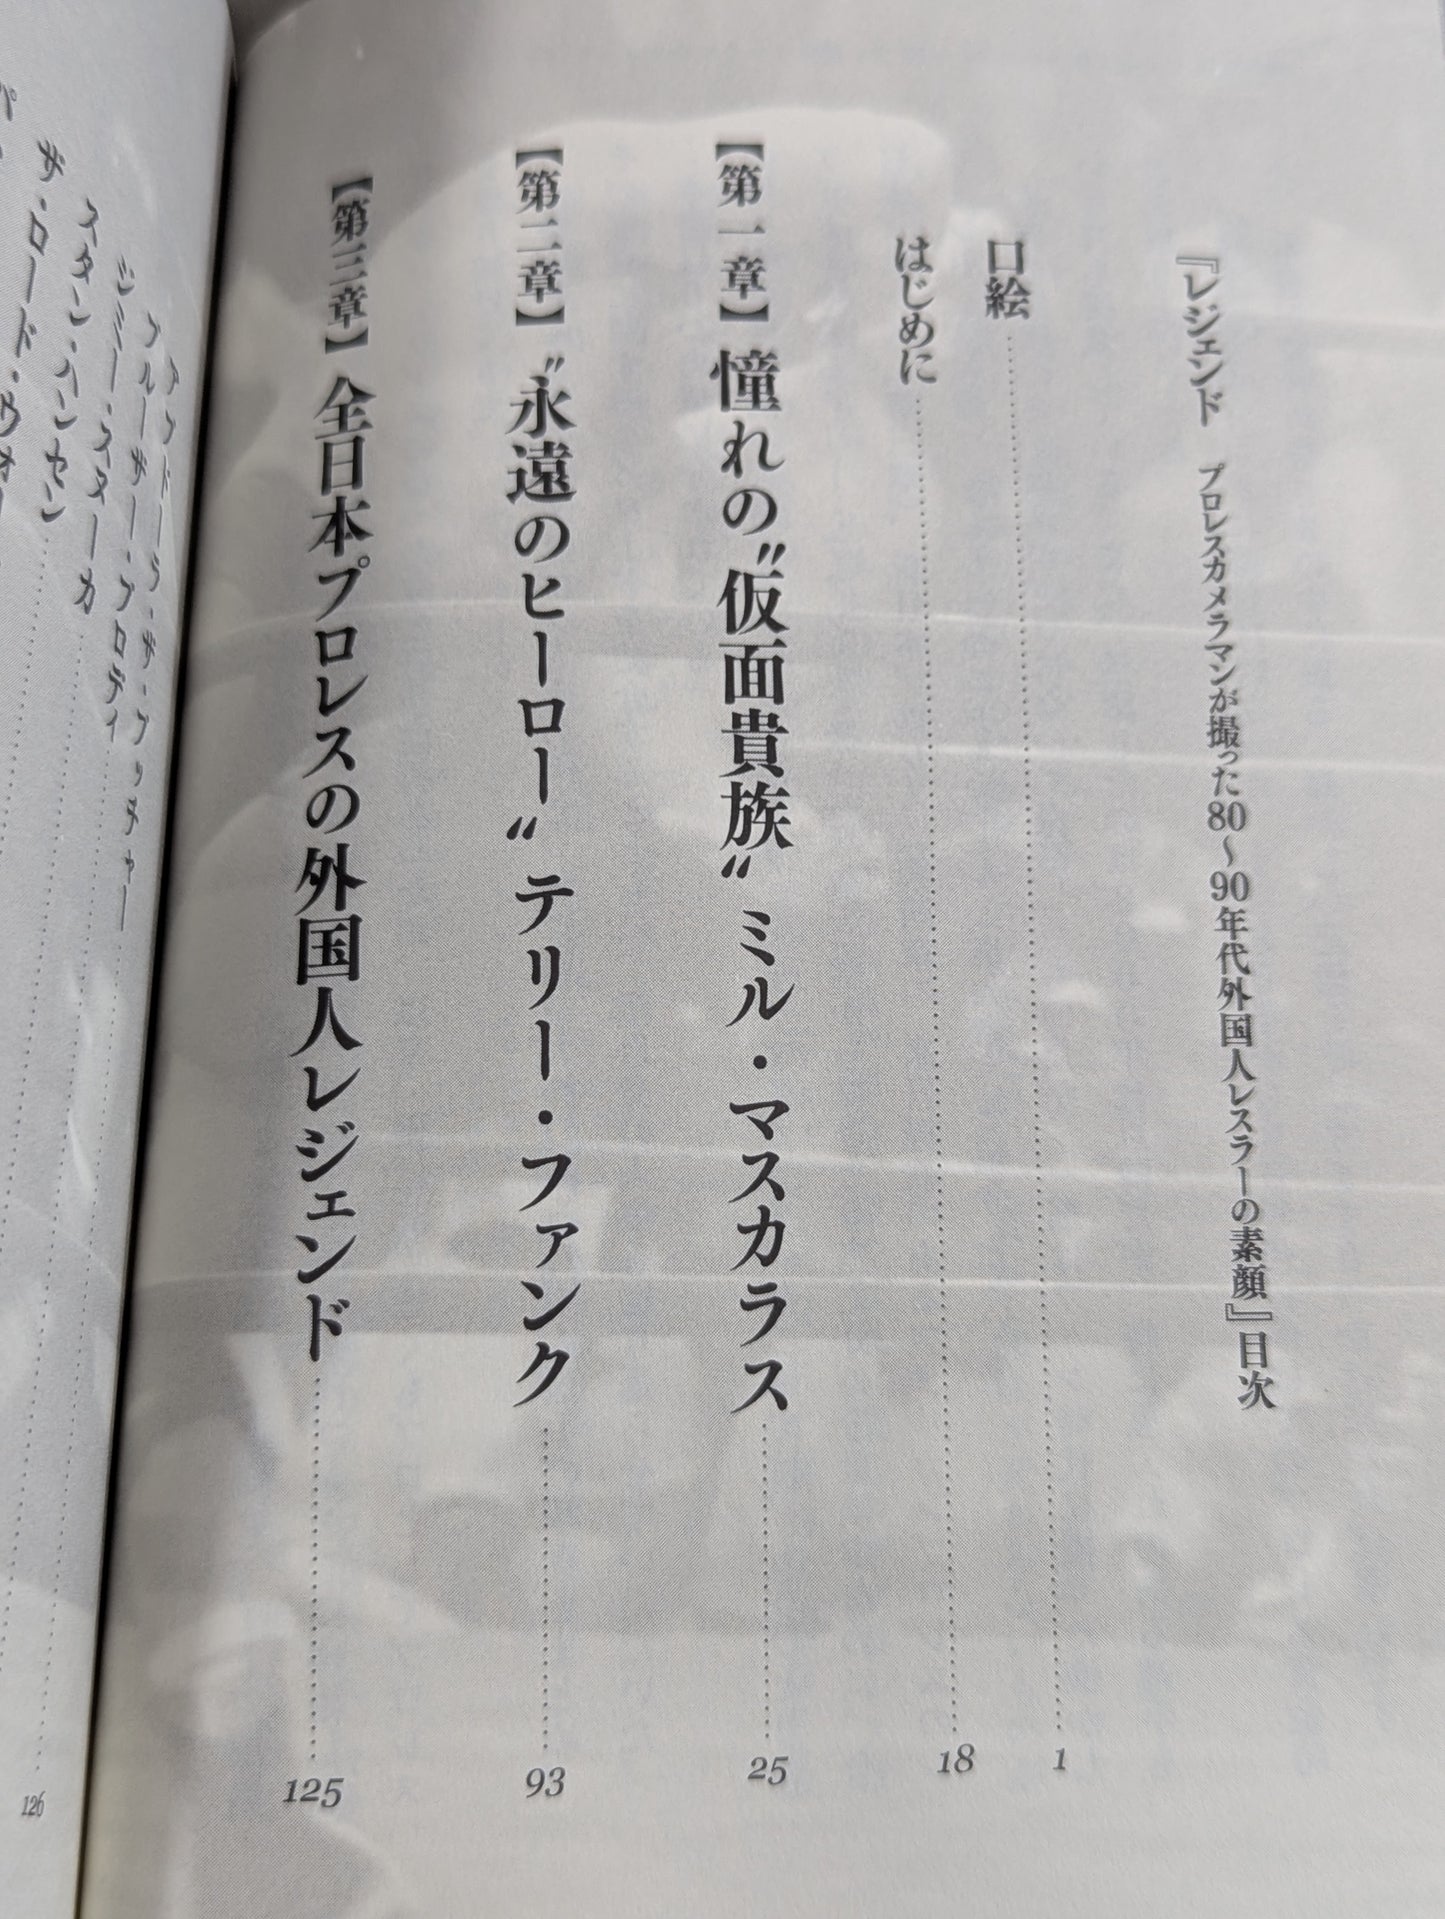 『レジェンド　プロレスカメラマンが撮った80〜90年代外国人レスラーの素顔』目次
口絵……1
はじめに……18
【第一章】憧れの〝仮面貴族〟ミル・マスカラス……25
【第二章】〝永遠のヒーロー〟テリー・ファンク……93
【第三章】全日本プロレスの外国人レジェンド……125
アブドーラ・ザ・ブッチャー……126
ブルーザー・ブロディ……
ジミー・スヌーカ……
スタン・ハンセン……
ザ・ロード・ウォー